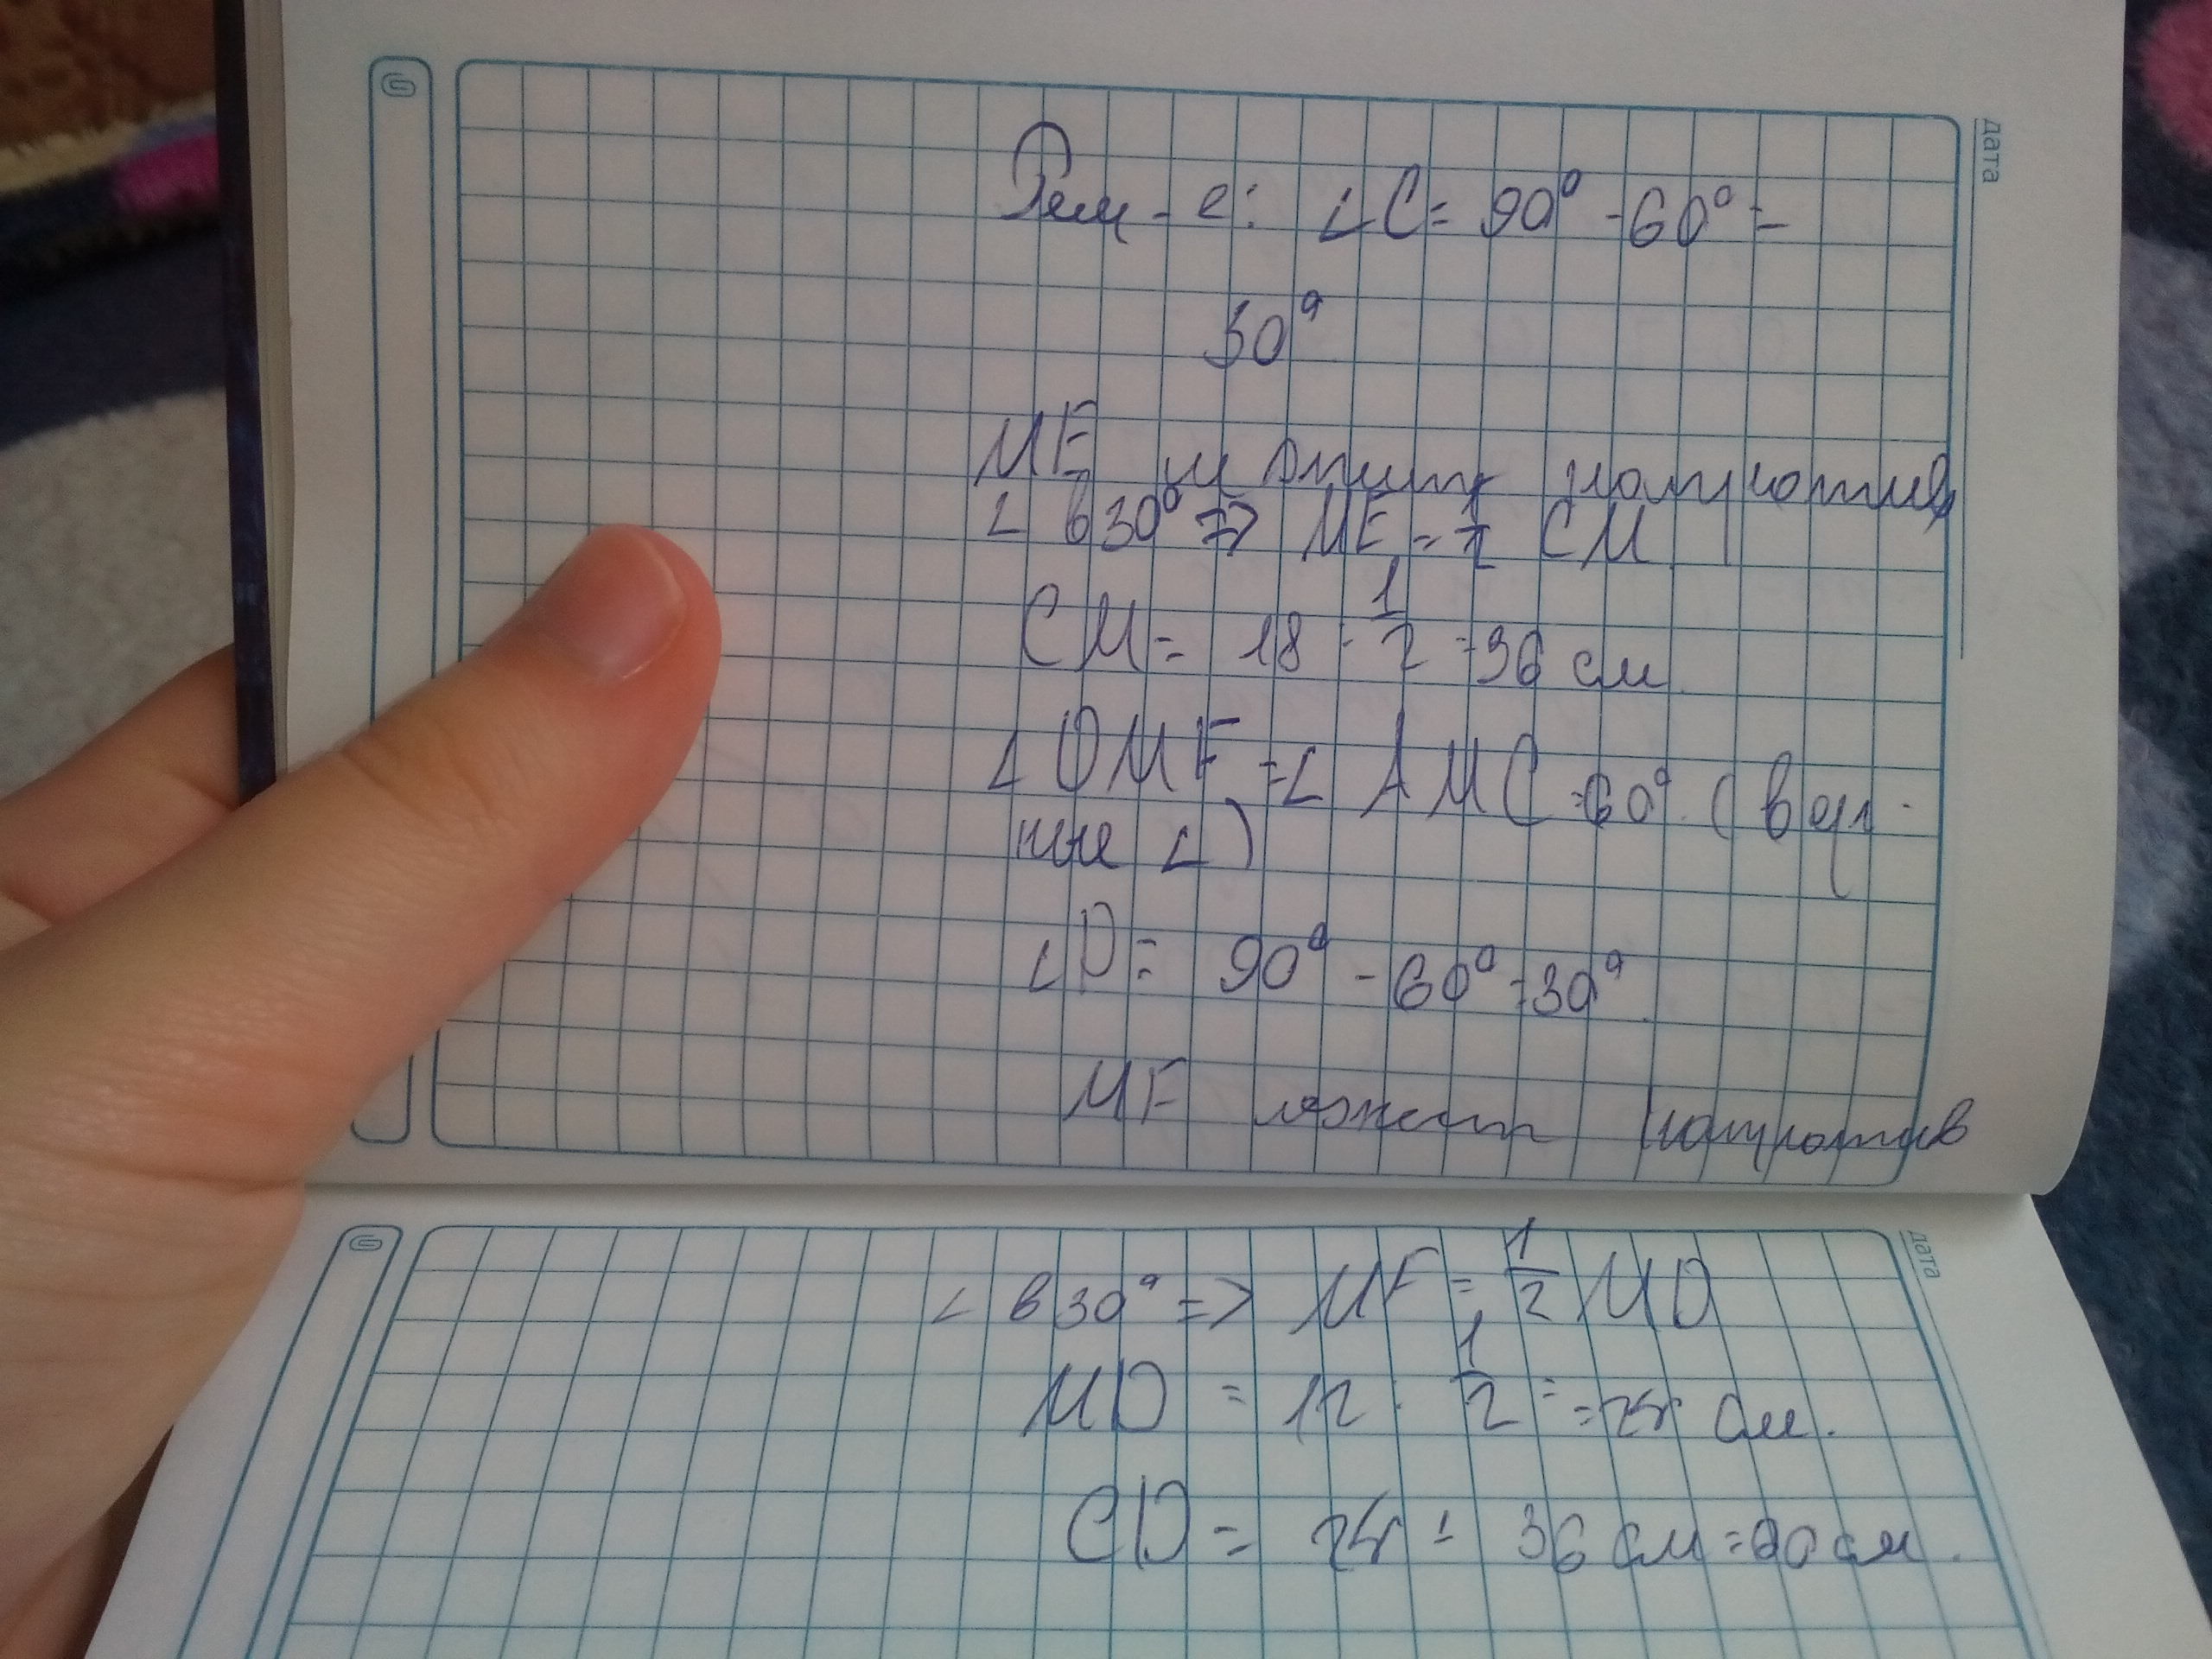 дата
Реш-е: ∠C = 90° - 60° =
30°
ME лежит напротив
∠ в 30° => ME = 1/2 CM
CM = 18 : 1/2 = 36 см
∠DMF = ∠AMC = 60° (верт-
ные ∠)
∠D = 90° - 60° = 30°.
MF лежит напротив
дата
∠ в 30° => MF = 1/2 MD
MD = 12 : 1/2 = = 24 см.
CD = 24 + 36 см = 60 см.